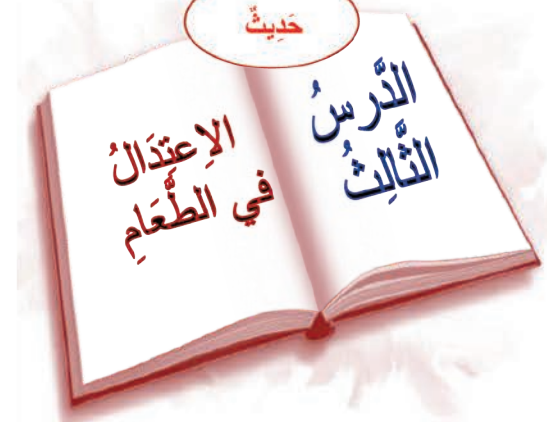 حَدِيثٌ
الدَّرسُ
الثَّالِثُ
الاِعتدَالُ
في الطَّعَامِ